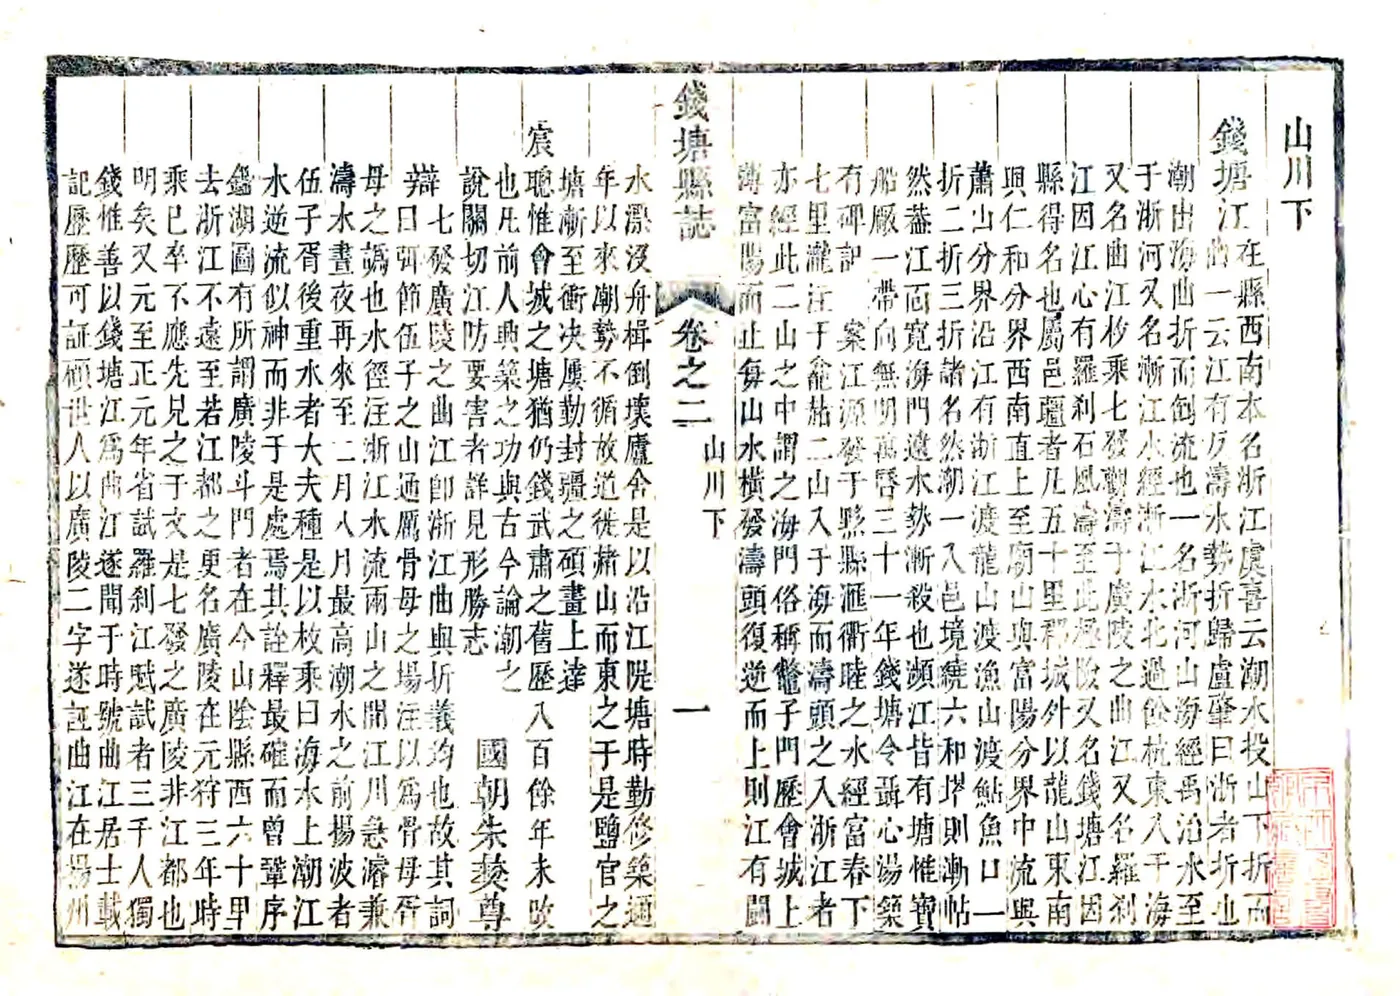 山川下
錢塘江在縣西南本名浙江虞喜云潮水投山下折而
曲一云江有反濤水勢折歸盧肇曰浙者折也
潮出海曲折而倒流也一名浙河山海經禹治水至
于浙河又名漸江水經浙江水北過餘杭東入于海
又名曲江枚乘七發觀濤于廣陵之曲江又名羅刹
江因江心有羅刹石風濤至此極險又名錢塘江因
縣得名也屬邑疆者凡五十里郡城外以龍山東南
與仁和分界西南直上至廟山與富陽分界中流與
蕭山分界沿江有浙江渡龍山渡漁山渡鮎魚口一
折二折三折諸名然潮一入邑境繞六和塔則漸帖
然葢江面寬海門遠水勢漸殺也瀕江皆有塘惟寶
船厰一帶向無明萬曆三十一年錢塘令聶心湯築
有碑記 案江源發于黟縣滙衢睦之水經富春下
七里瀧注于龕赭二山入于海而濤頭之入浙江者
亦經此二山之中謂之海門俗稱鼈子門歷會城上
溥富陽而止每山水橫發濤頭復逆而上則江有鬭
錢塘縣誌 卷之二 山川下 一
水漂沒舟楫倒壞廬舍是以沿江隄塘時勤修築邇
年以來潮勢不循故道徙赭山而東之于是鹽官之
塘漸至衝決屢勤封疆之碩畫上達
宸聰惟會城之塘猶仍錢武肅之舊歷八百餘年未改
也凡前人興築之功與古今論潮之
說關切江防要害者詳見形勝志 國朝朱彝尊
辯七發廣陵之曲江卽浙江曲與折義均也故其詞
曰弭節伍子之山通厲骨母之場注以爲骨母胥
母之譌也水徑注浙江水流兩山之間江川急濬兼
濤水晝夜再來至二月八月最高潮水之前揚波者
伍子胥後重水者大夫種是以枚乘曰海水上潮江
水逆流似神而非于是處焉其詮釋最確而曾鞏序
鑑湖圖有所謂廣陵斗門者在今山陰縣西六十里
去浙江不遠至若江都之更名廣陵在元狩三年時
乘已卒不應先見之于文是七發之廣陵非江都也
明矣又元至正元年省試羅刹江賦試者三千人獨
錢惟善以錢塘江爲曲江遂聞于時號曲江居士載
記歷歷可証碩世人以廣陵二字遂誣曲江在揚州